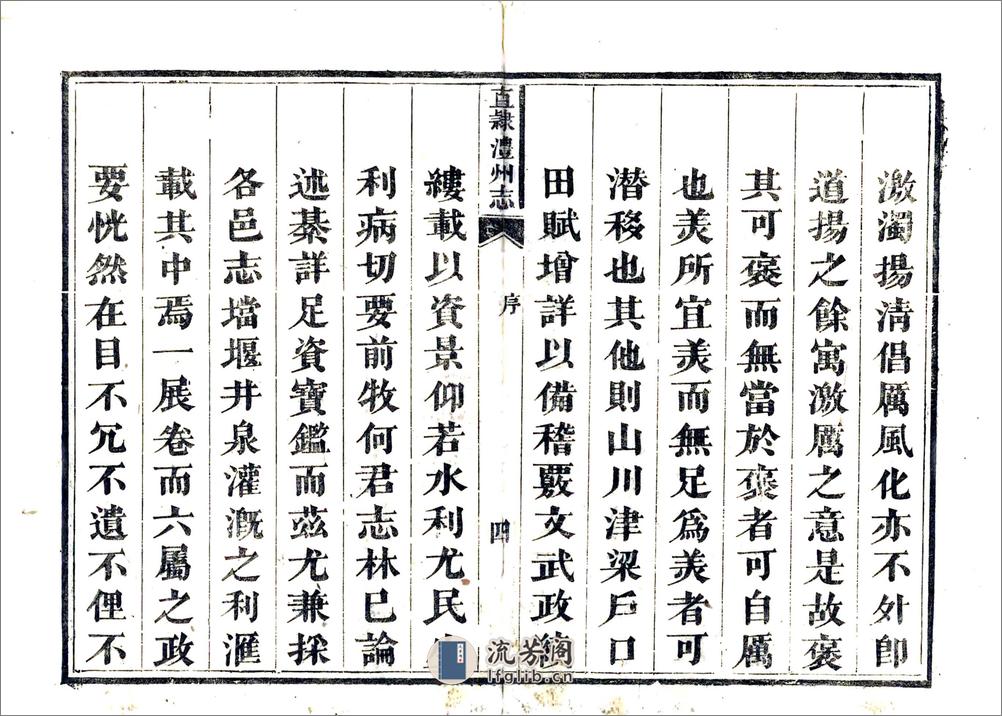 激濁揚清倡厲風化亦不外卽
道揚之餘寓激厲之意是故褒
其可褒而無當於褒者可自厲
也羙所宜羙而無足爲羙者可
潛移也其他則山川津梁戶口
田賦增詳以備稽覈文武政績
直隷澧州志
序
四
縷載以資景仰若水利尤民
利病切要前牧何君志林已論
述綦詳足資寶鑑而茲尤兼採
各邑志壋堰井泉灌漑之利滙
載其中焉一展卷而六屬之政
要恍然在目不冗不遺不俚不
流芳阁
lfglib.cn